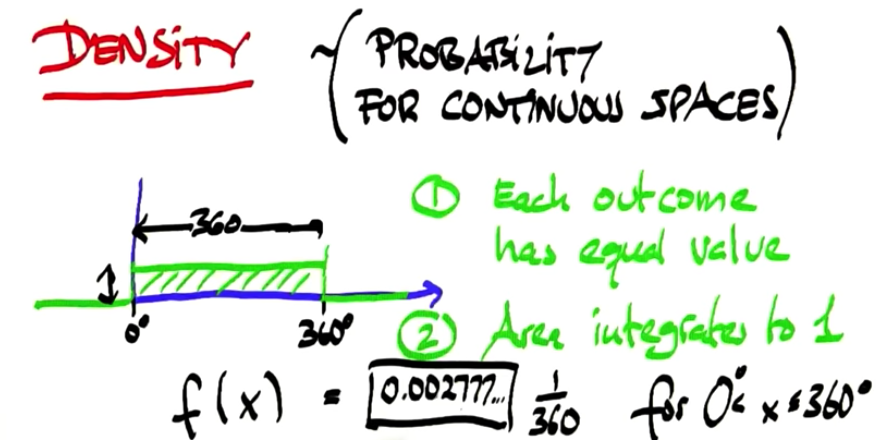 DENSITY ~ ( PROBABILITY
FOR CONTINUOUS SPACES )
① Each outcome
has equal value
360
0° 360°
② Area integrates to 1
f(x) = 0.002777... 1/360 for 0°≤ x ≤ 360°